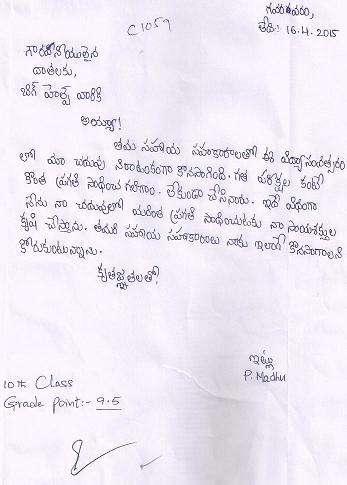 C1059
గవరవరం,
తేది: 16.4.2015
గౌరవనీయులైన
దాతలకు,
బిగ్ హెల్ప్ వారికి
అయ్యా!
తమ సహాయ సహకారాలతో ఈ విద్యాసంవత్సరం
లో మా చదువు నిరాటంకంగా కొనసాగింది. గత పరీక్షల కంటే
కొంత ప్రగతి సాధించ గలిగాం. చేసినారు. ఇదే విధంగా
నేను నా చదువులో మరింత ప్రగతి సాధించుటకు నా సాయశక్తుల
కృషి చేస్తాను. తమరి సహాయ సహకారాలు నాకు ఇలాగే కొనసాగాలని
కోరుకుంటున్నాను.
కృతజ్ఞతలతో,
ఇట్లు
P. Madhu
10th Class
Grade point:- 9.5